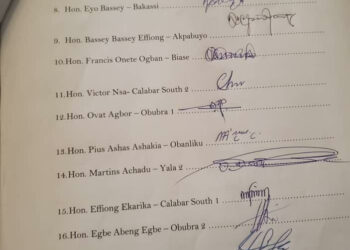 8. Hon. Eyo Bassey – Bakassi
9. Hon. Bassey Bassey Effiong – Akpabuyo
10. Hon. Francis Onete Ogban – Biase
11. Hon. Victor Nsa- Calabar South 2
12. Hon. Ovat Agbor – Obubra 1
13. Hon. Pius Ashas Ashakia – Obanliku
14. Hon. Martins Achadu – Yala 2
15. Hon. Effiong Ekarika – Calabar South 1
16. Hon. Egbe Abeng Egbe – Obubra 2